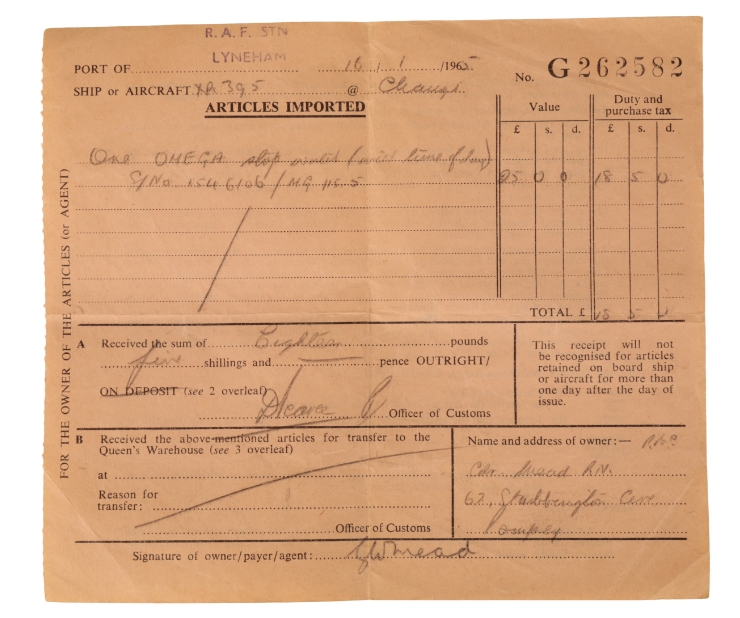 R.A.F. STN
LYNEHAM
PORT OF 16 / 1 /1965
No. G 262582
SHIP or AIRCRAFT XR 395 @ Changi
ARTICLES IMPORTED
Value
Duty and purchase tax
£ s. d. £ s. d.
One OMEGA stop time of day)
S/No 1546106 / MG 0 0 18 5 0
TOTAL £ 18 5
FOR THE OWNER OF THE ARTICLES (or AGENT)
A Received the sum of Eighteen pounds
five shillings and pence OUTRIGHT/
ON DEPOSIT (see 2 overleaf)
Officer of Customs
This receipt will not
be recognised for articles
retained on board ship
or aircraft for more than
one day after the day of
issue.
B Received the above-mentioned articles for transfer to the
Queen's Warehouse (see 3 overleaf)
at
Reason for
transfer:
Officer of Customs
Name and address of owner:—
Cdr Mead R.N.
62, Stubbington
Signature of owner/payer/agent: Mead